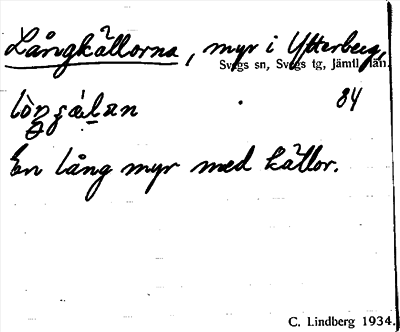 Långkällorna, myr i Ytterberg,
Svegs sn, Svegs tg, Jämtl. län.
84
En lång myr med källor.
C. Lindberg 1934.